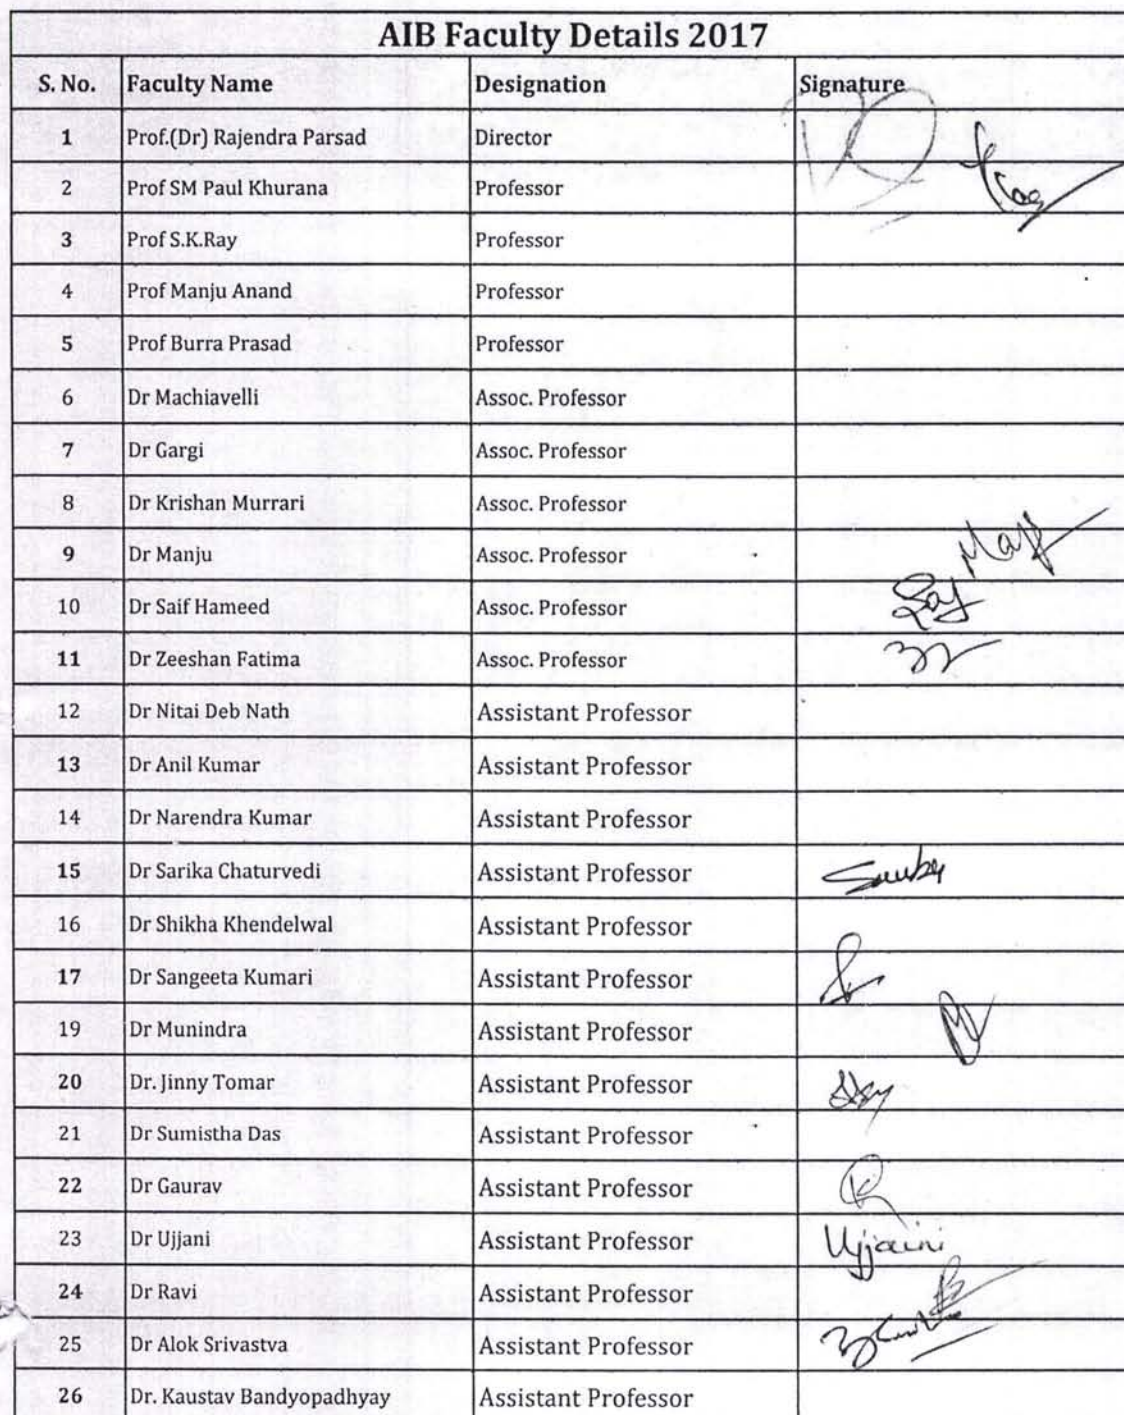 AIB Faculty Details 2017
S. No. Faculty Name Designation Signature
1 Prof.(Dr) Rajendra Parsad Director
2 Prof SM Paul Khurana Professor
3 Prof S.K.Ray Professor
4 Prof Manju Anand Professor
5 Prof Burra Prasad Professor
6 Dr Machiavelli Assoc. Professor
7 Dr Gargi Assoc. Professor
8 Dr Krishan Murrari Assoc. Professor
9 Dr Manju Assoc. Professor
10 Dr Saif Hameed Assoc. Professor
11 Dr Zeeshan Fatima Assoc. Professor
12 Dr Nitai Deb Nath Assistant Professor
13 Dr Anil Kumar Assistant Professor
14 Dr Narendra Kumar Assistant Professor
15 Dr Sarika Chaturvedi Assistant Professor
16 Dr Shikha Khendelwal Assistant Professor
17 Dr Sangeeta Kumari Assistant Professor
19 Dr Munindra Assistant Professor
20 Dr. Jinny Tomar Assistant Professor
21 Dr Sumistha Das Assistant Professor
22 Dr Gaurav Assistant Professor
23 Dr Ujjani Assistant Professor Ujjaini
24 Dr Ravi Assistant Professor
25 Dr Alok Srivastva Assistant Professor
26 Dr. Kaustav Bandyopadhyay Assistant Professor